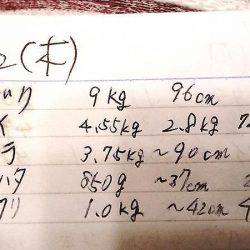 2(木)
9kg 96cm
イ 4.55kg 2.8kg 7
ラ 3.75kg ~90cm
ハタ 850g ~37cm
ブリ 1.0kg ~42cm 4